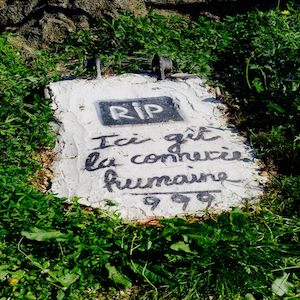 RIP
Ici gît
la connerie
humaine
999